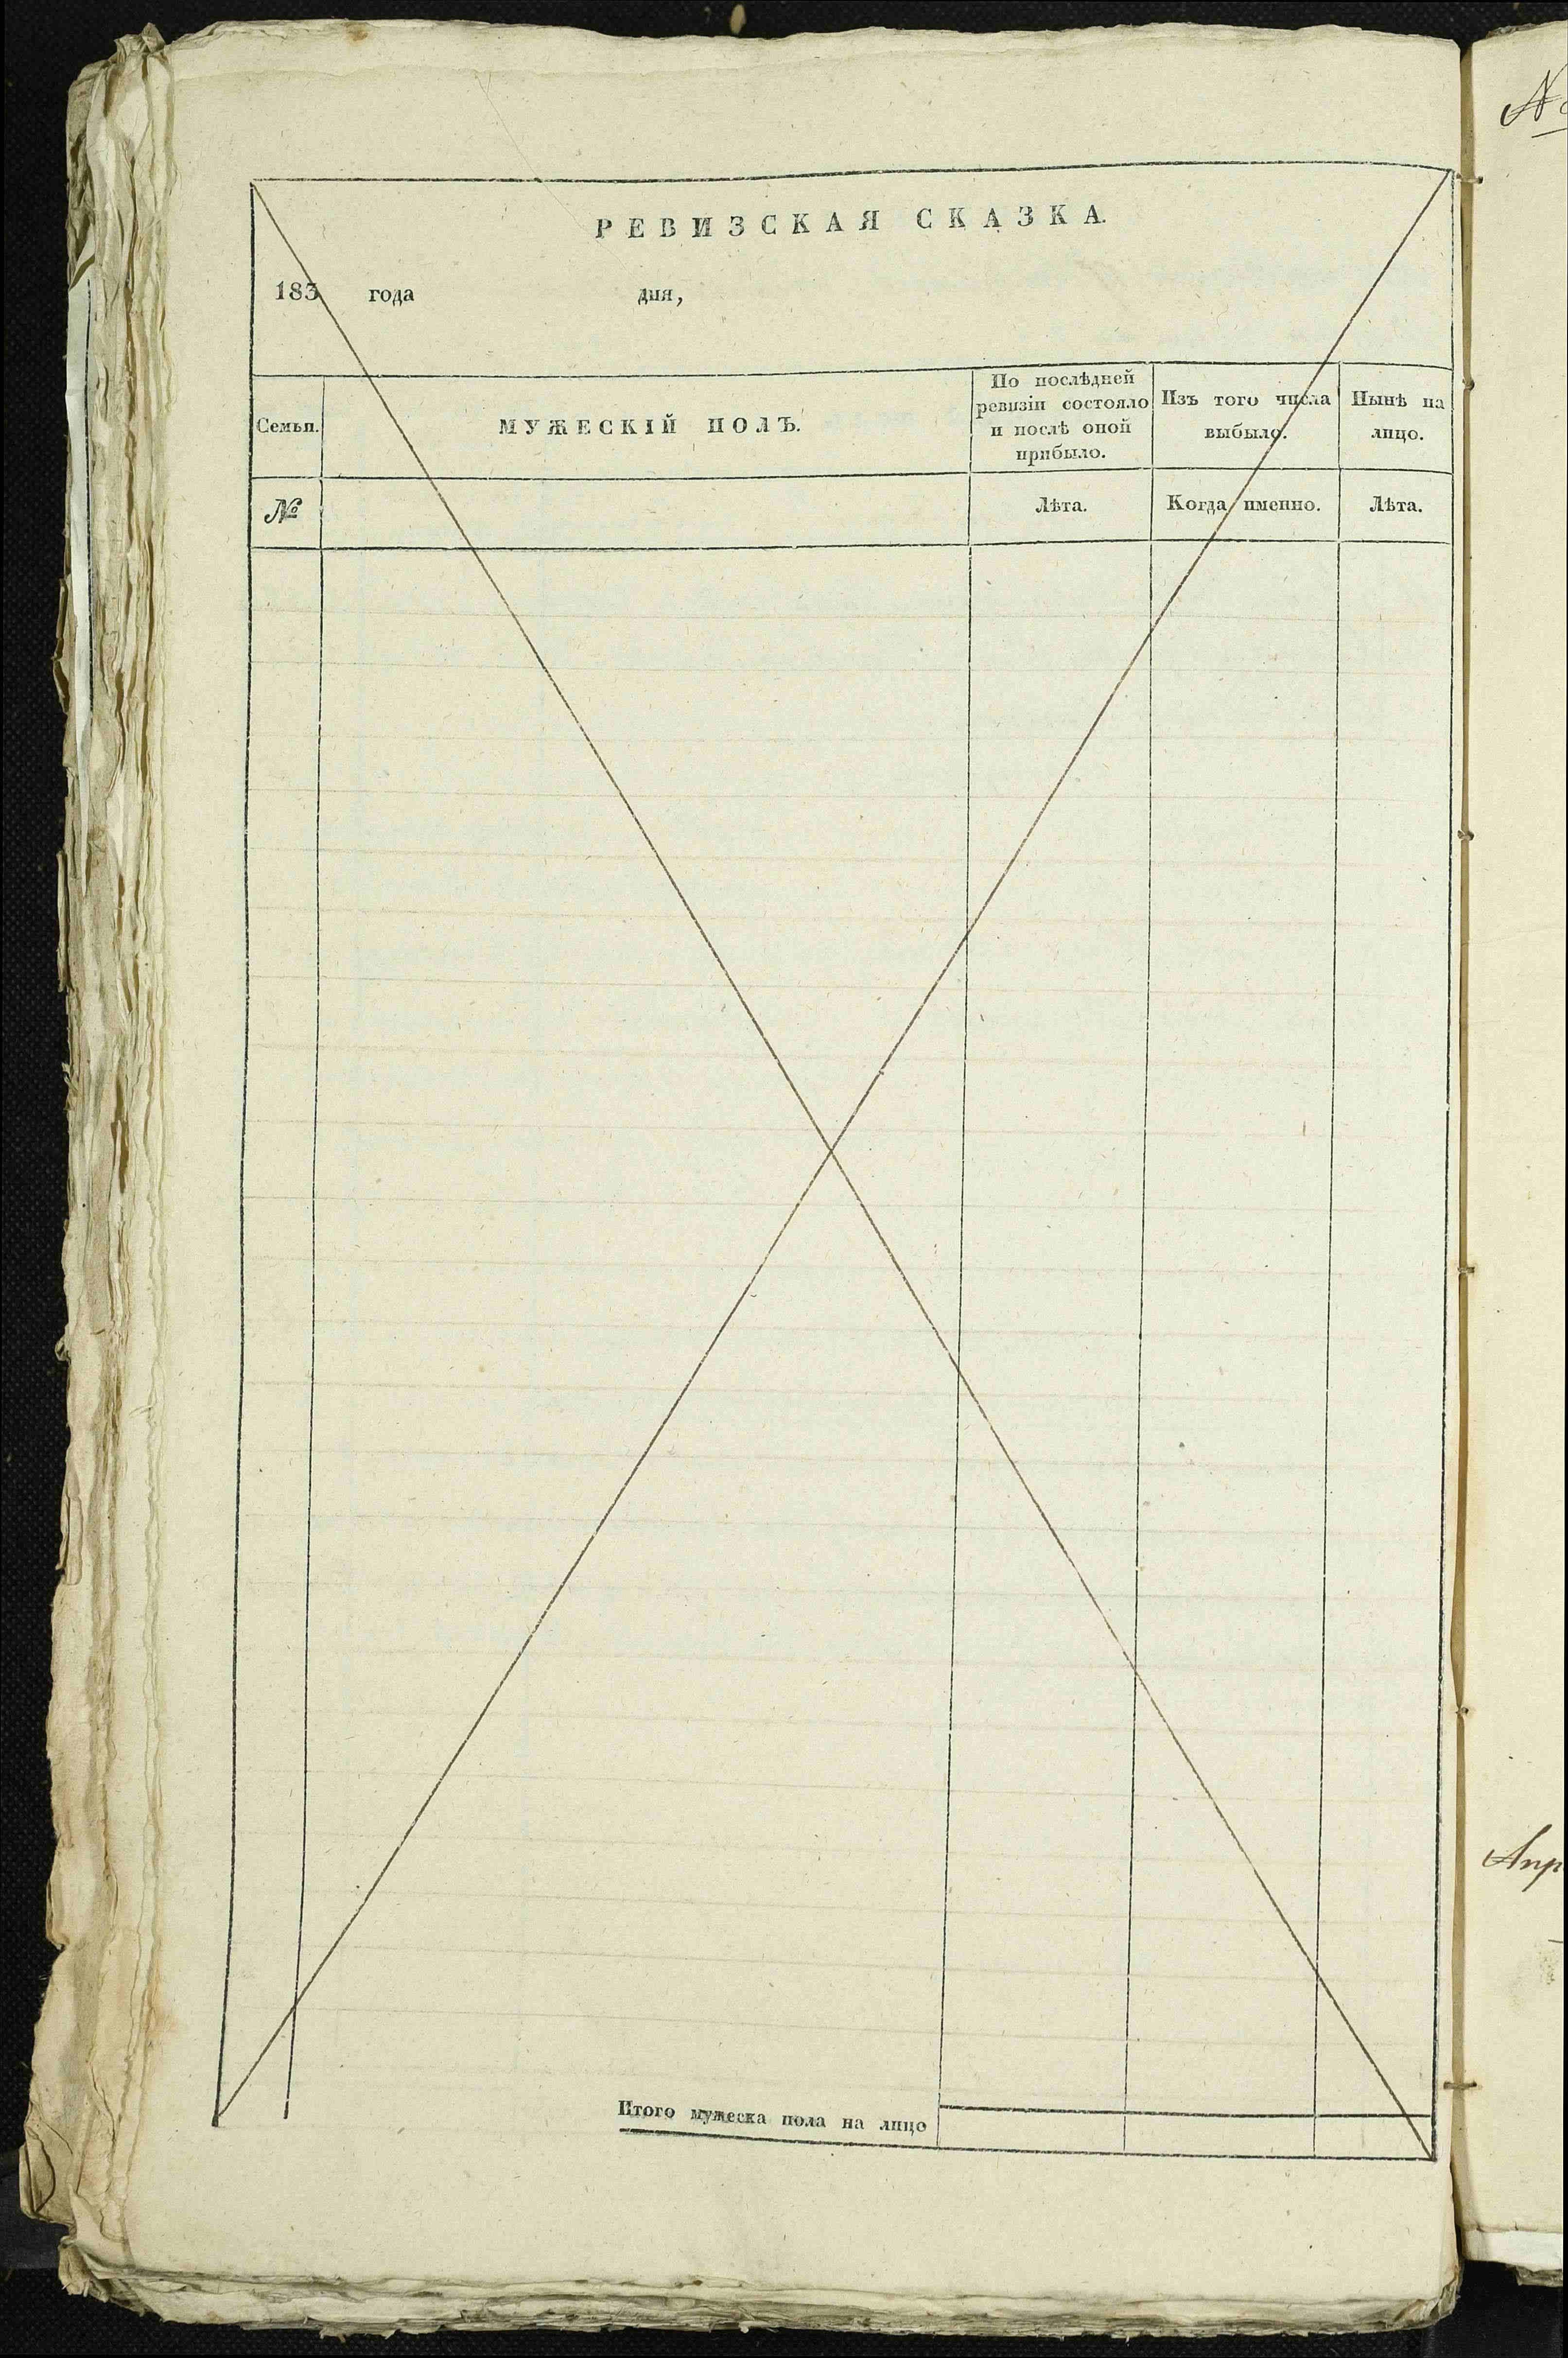 РЕВИЗСКАЯ СКАЗКА.
183 года дня,
Семьи.
МУЖЕСКІЙ ПОЛЪ.
По послѣдней
ревизіи состояло
и послѣ оной
прибыло.
Изъ того числа
выбыло.
Нынѣ на
лицо.
№
Лѣта.
Когда именно.
Лѣта.
Итого мужеска пола на лицо
№
Апр